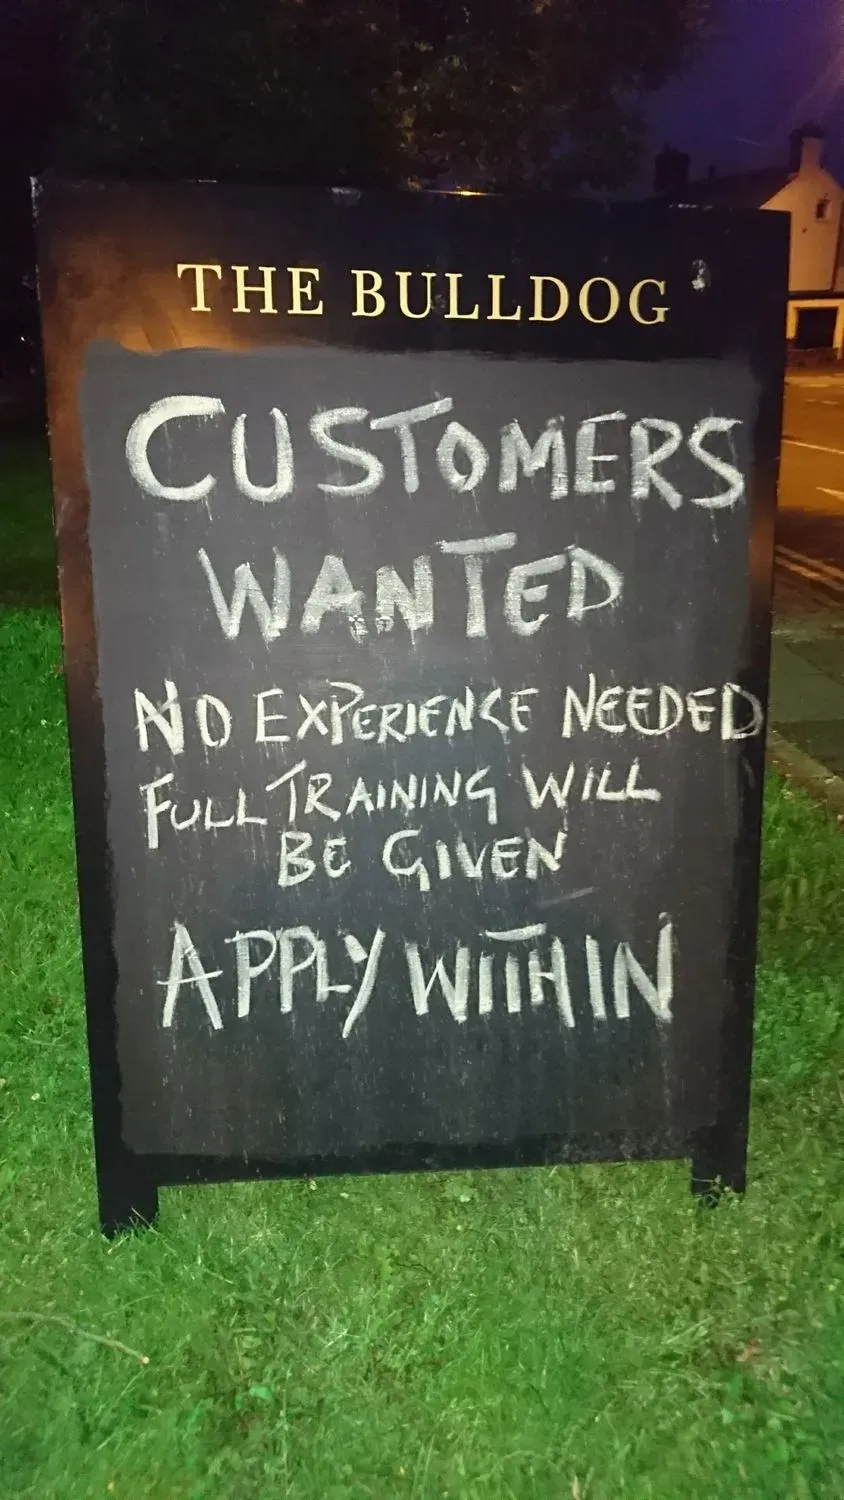 THE BULLDOG
CUSTOMERS
WANTED
NO EXPERIENCE NEEDED
FULL TRAINING WILL
BE GIVEN
APPLY WITHIN